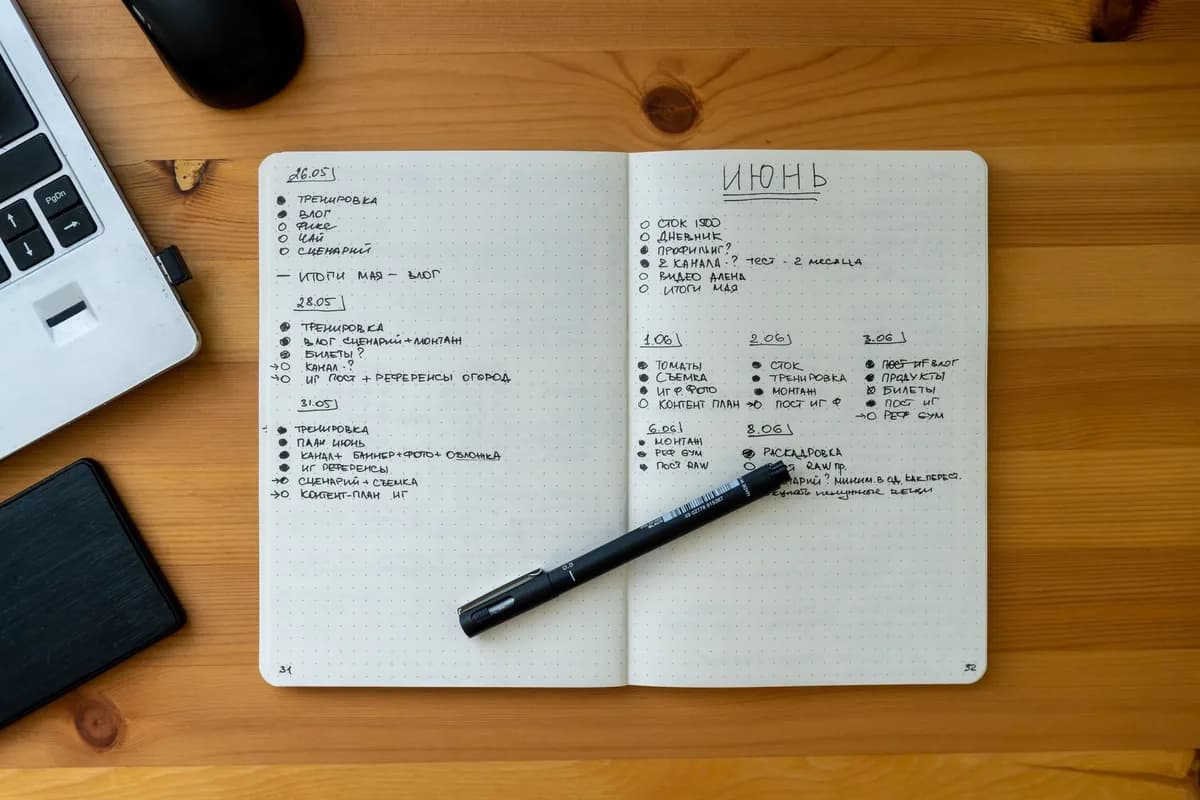 PgDn
26.05
ТРЕНИРОВКА
ВЛОГ
ФИКС
ЧАЙ
СЦЕНАРИЙ
— ИТОГИ МАЯ — ВЛОГ
28.05
ТРЕНИРОВКА
ВЛОГ СЦЕНАРИЙ + МОНТАЖ
БИЛЕТЫ?
КАНАЛ - ?
ИГ ПОСТ + РЕФЕРЕНСЫ ОГОРОД
31.05
ТРЕНИРОВКА
ПЛАН ИЮНЬ
КАНАЛ + БАННЕР + ФОТО + ОБЛОЖКА
ИГ РЕФЕРЕНСЫ
СЦЕНАРИЙ + СЪЕМКА
КОНТЕНТ-ПЛАН ИГ
31
ИЮНЬ
СТОК 1500
ДНЕВНИК
ПРОФИЛИНГ?
2 КАНАЛА - ? ТЕСТ - 2 МЕСЯЦА
ВИДЕО АЛЕНА
ИТОГИ МАЯ
1.06
ТОМАТЫ
СЪЕМКА
ИГ ФОТО
КОНТЕНТ ПЛАН
2.06
СТОК
ТРЕНИРОВКА
МОНТАЖ
ПОСТ ИГ Ф
3.06
ПОСТ ИГ ВЛОГ
ПРОДУКТЫ
БИЛЕТЫ
ПОСТ ИГ
РЕФ БУМ
6.06
МОНТАЖ
РЕФ БУМ
ПОСТ RAW
8.06
РАСКАДРОВКА
RAW пр.
МИНИМ. В ОД. КАК ПЕРЕСТ.
ненужные вещи
0.5
32